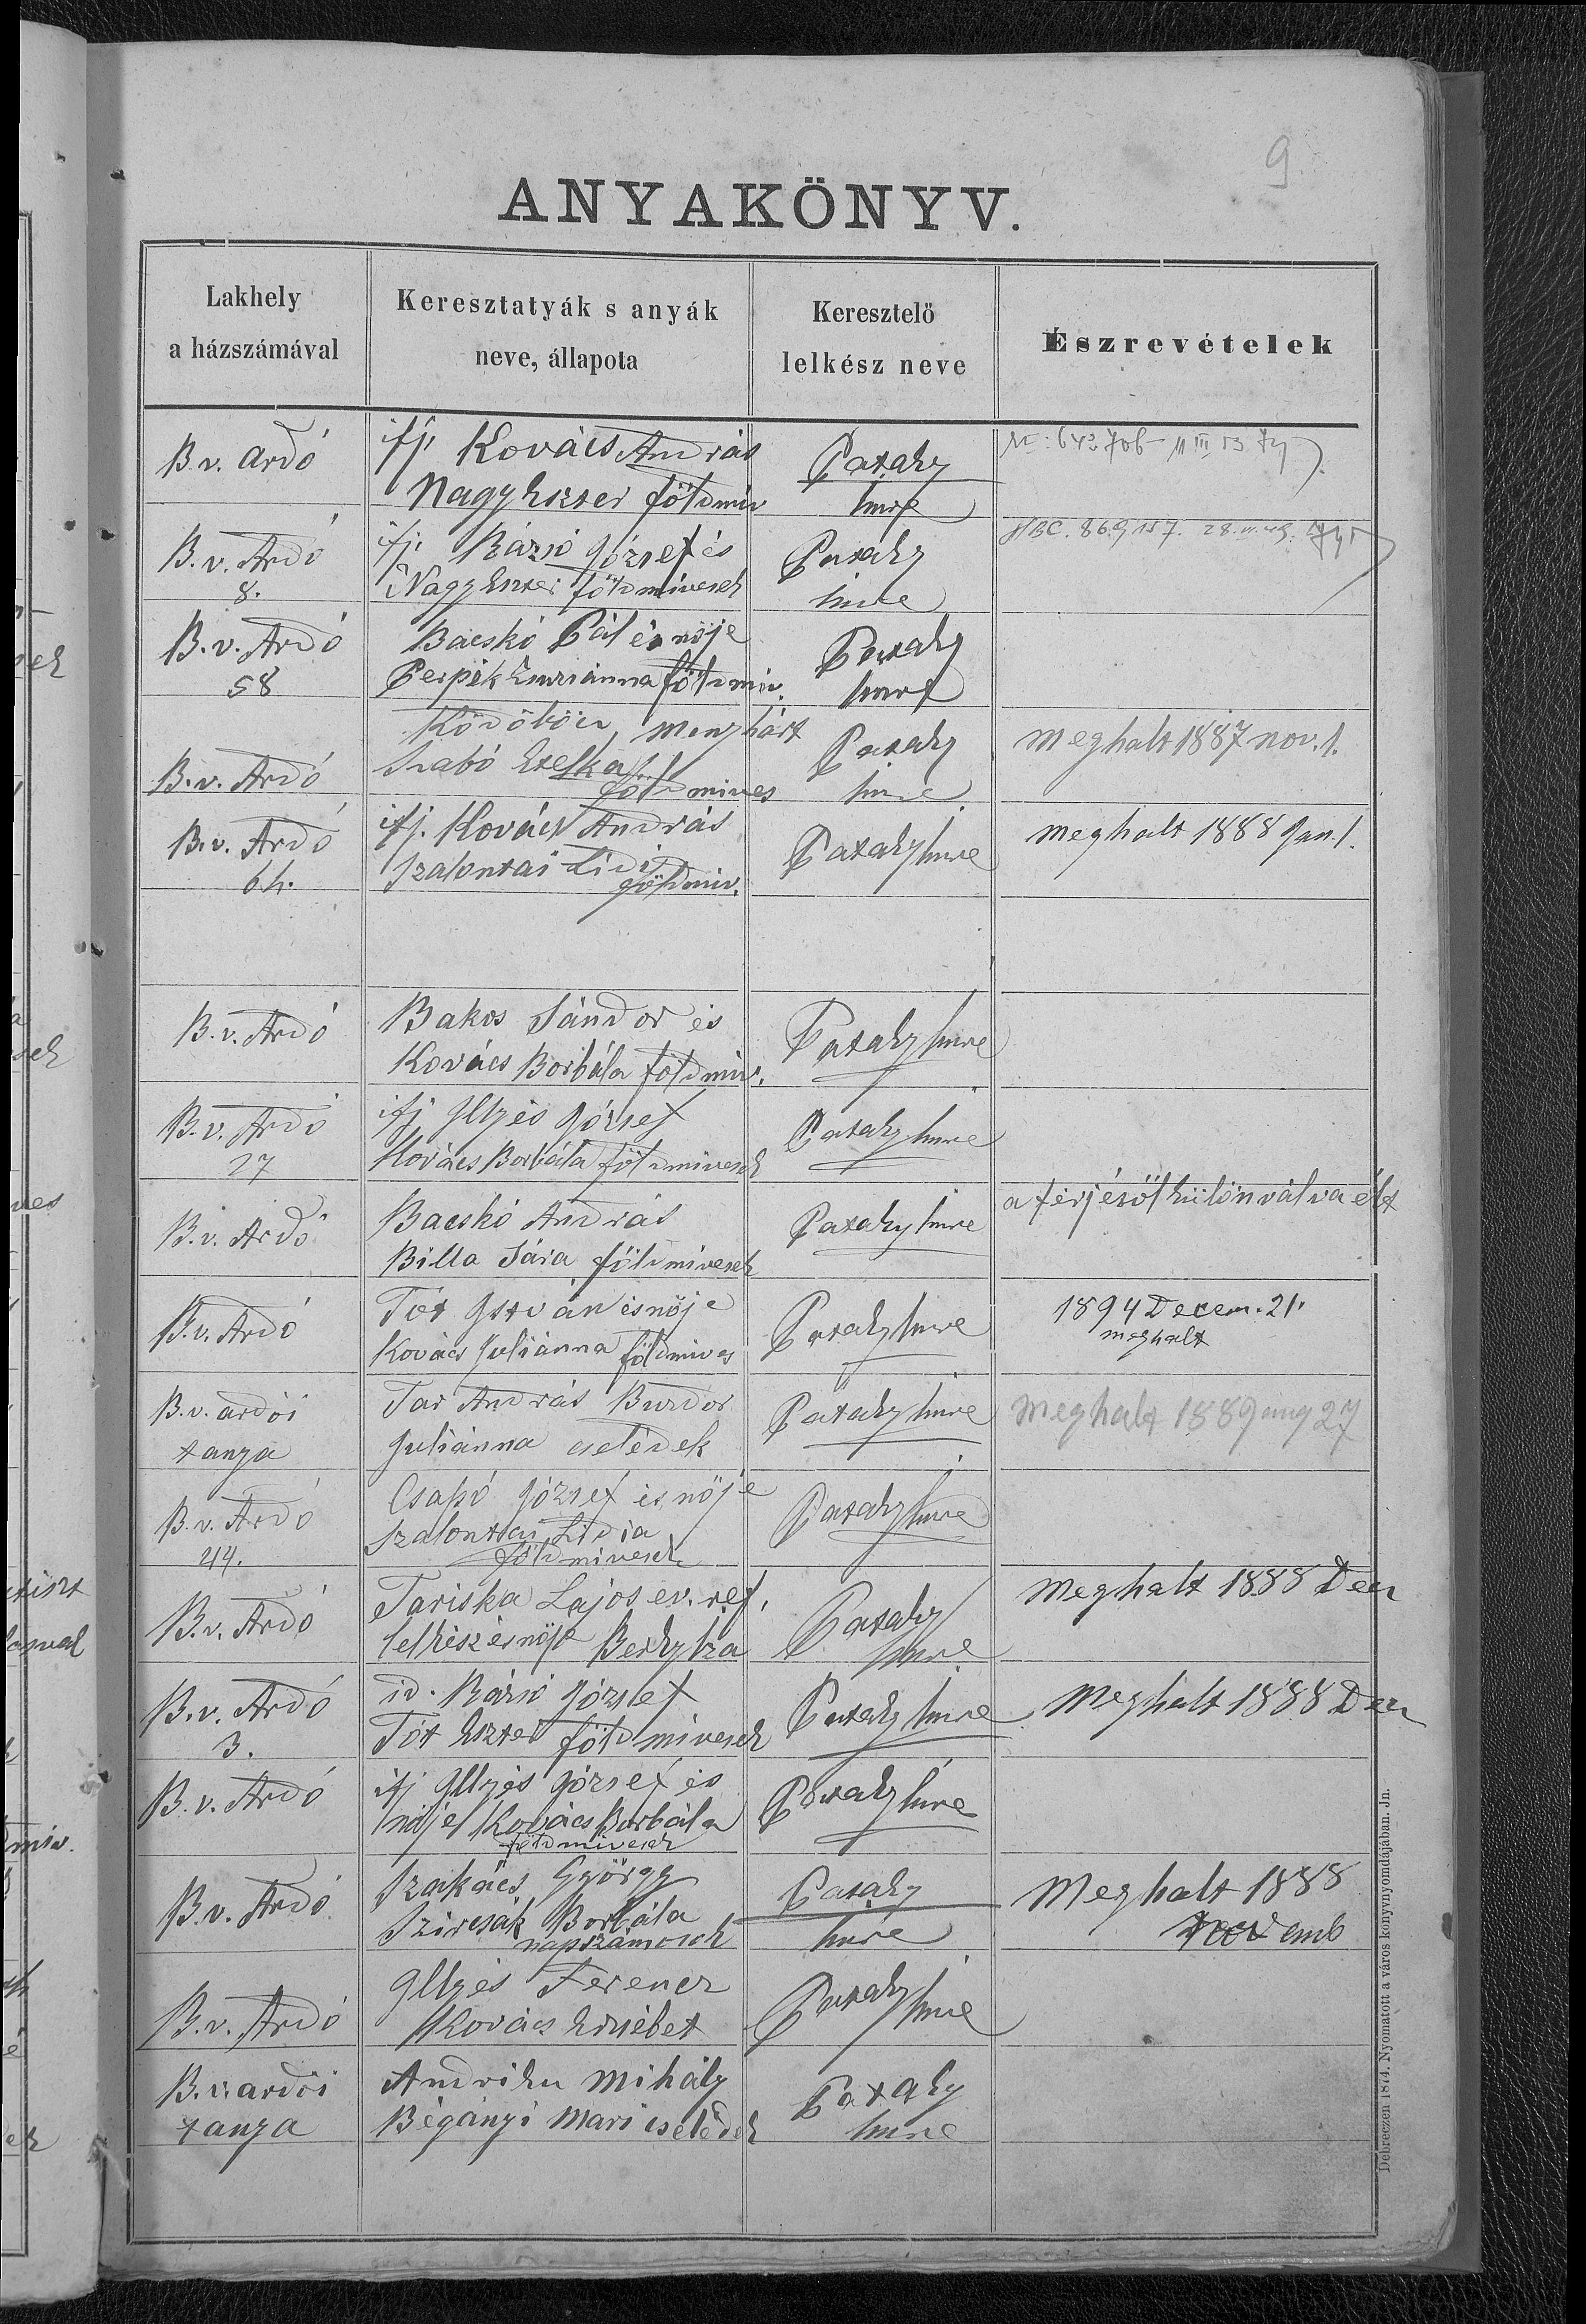 9
ANYAKÖNYV.
Lakhely
a házszámával
Keresztatyák s anyák
neve, állapota
Keresztelő
lelkész neve
Észrevételek
B. v. ardó
ifj. Kovács András
Nagy Eszter földmiv
Pataky
Imre
B. v. Ardó
8.
ifj. Bázsó József és
Nagy Eszter földmivesek
Pataky
Imre
B. v. Ardó
58
Bacskó Pál és nője
Perpék Zsuzsánna földmiv.
Pataky
Imre
B. v. Ardó
Menyhárt
Szabó Etelka
földmives
Pataky
Imre
Meghalt 1887 nov. 1.
B. v. Ardó
64.
ifj. Kovács András
Szalontai Lidi
földmiv.
Pataky Imre
meghalt 1888 Jan. 1.
B. v. Ardó
Bakos Sándor és
Kovács Borbála földmiv.
Pataky Imre
B. v. Ardó
27
ifj Illyés József
Kovács Borbála földmivesek
Pataky Imre
B. v. Ardó
Bacskó András
Billa Sára földmivesek
Pataky Imre
a férjésől külön válva élt
B. v. Ardó
Tót István és nője
Kovács Juliánna földmives
Pataky Imre
1894 Decem. 21.
meghalt
B. v. ardói
tanya
Tar András Buzdor
Juliánna cselédek
Pataky Imre
Meghalt 1889 aug 27
B. v. Ardó
44.
Csapó József és nője
Szalontai Lidia
földmivesek
Pataky Imre
B. v. Ardó
Tariska Lajos ev. ref.
lelkész és nője Berky Iza
Pataky
Imre
Meghalt 1888 Dec
B. v. Ardó
3.
id. Bázsó József
Tót Eszter földmivesek
Pataky Imre
Meghalt 1888 Dec
B. v. Ardó
ifj Illyés József és
nője Kovács Borbála
földmivesek
Pataky Imre
B. v. Ardó
Szakács György
Szircsák Borbála
napszámosok
Pataky
Imre
Meghalt 1888
novemb
B. v. Ardó
Illyés Ferencz
Kovács Erzsébet
Pataky Imre
B. v. ardói
tanya
Andriku Mihály
Bégányi Mari cselédek
Pataky
Imre
Debreczen 1874. Nyomatott a város könyvnyomdájában. Jn.